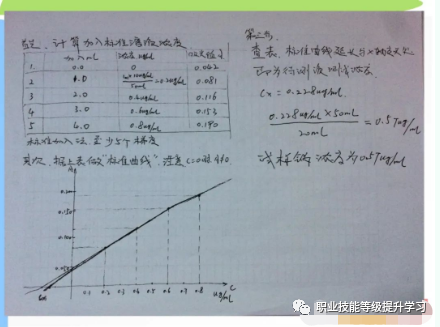 首先,计算加入标准溶液浓度
加入mL 浓度 ug/mL 吸光度A
1. 0.0 0 0.042
2 1.0 =0.2ug/mL 0.081
50mL
3 2.0 0.4ug/mL 0.116
4 3.0 0.6ug/mL 0.153
5 4.0 0.8ug/mL 0.190
标准加入法 至少5个梯度
其次,根据上表做“标准曲线”,注意C=0时 A≠0
A
0.200
0.150
0.100
0.050
Cx 0.1 0.2 0.3 0.4 0.5 0.6 0.7 0.8 C
ug/mL
第三步,
查表,标准曲线延长与x轴交点处
即为待测液测得浓度
Cx = 0.228ug/mL
0.228ug/mL × 50mL
20mL
= 0.57ug/mL
试样 浓度为0.57ug/mL
职业技能等级提升学习